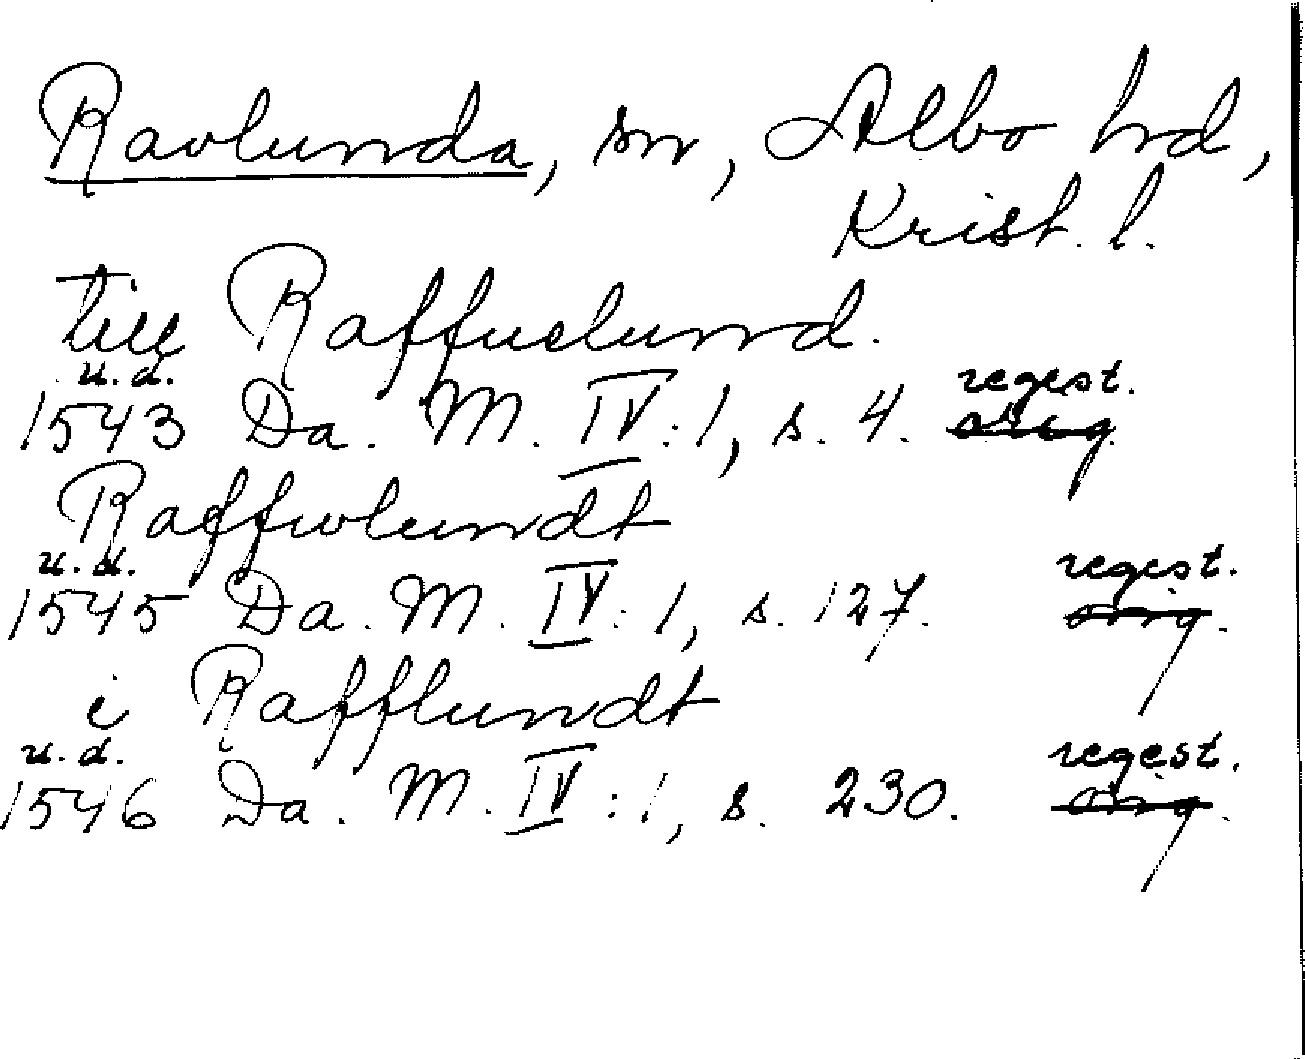 Ravlunda, sn, Albo hrd,
Krist. l.
till Raffuelund.
u. d. regest.
1543 Da. M. IV:1, s. 4. orig.
Raffwlundt
u. d. regest.
1545 Da. M. IV:1, s. 127. orig.
i Rafflundt
u. d. regest.
1546 Da. M. IV:1, s. 230. orig.